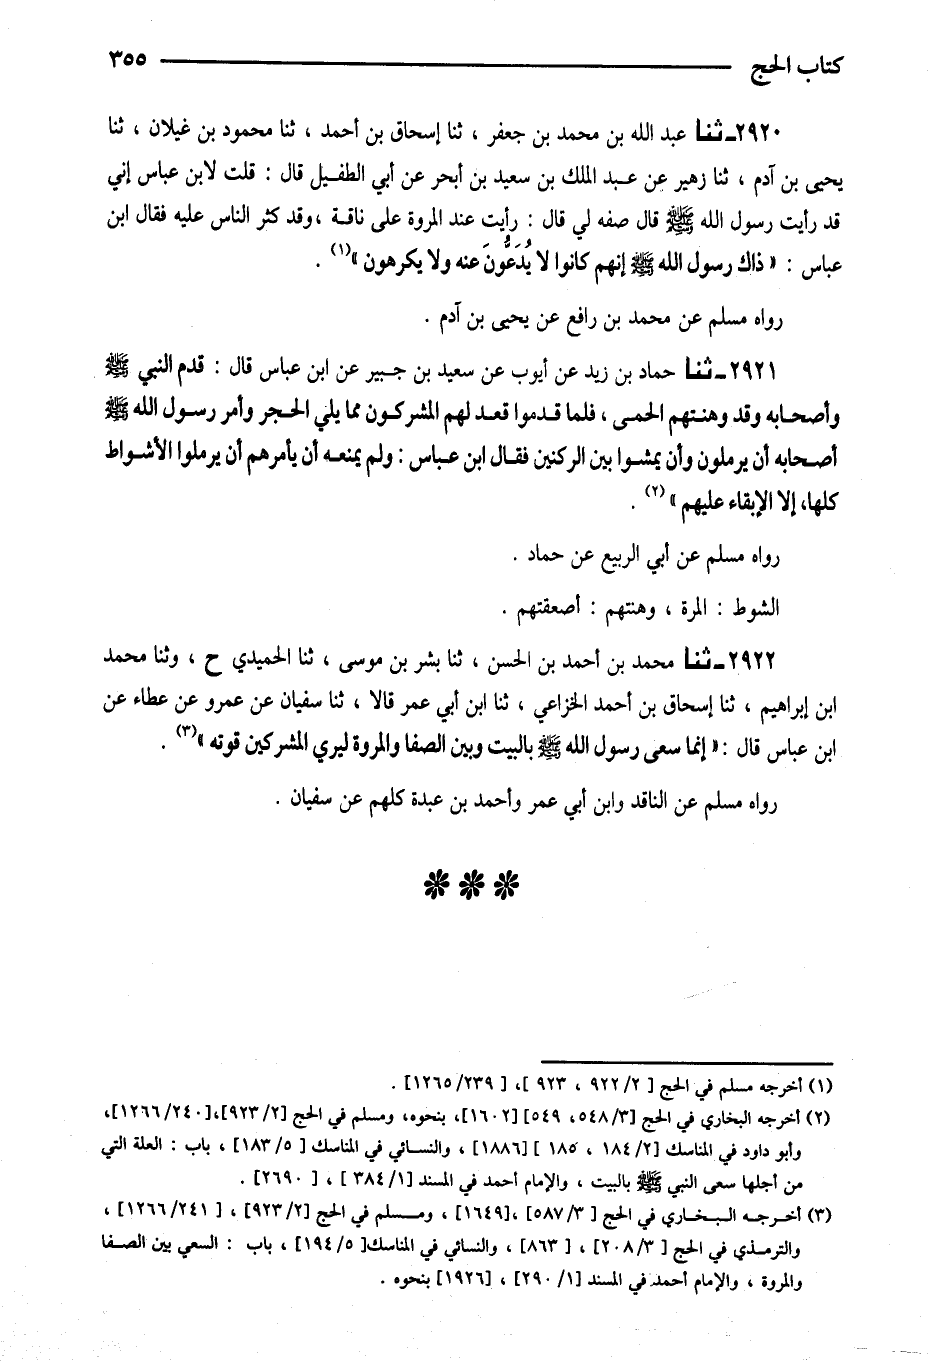 كتاب الحج ٣٥٥
٢٩٢٠ـ ثنا عبد الله بن محمد بن جعفر ، ثنا إسحاق بن أحمد ، ثنا محمود بن غيلان ، ثنا
يحيى بن آدم ، ثنا زهير عن عبد الملك بن سعيد بن أبحر عن أبي الطفيل قال : قلت لابن عباس إني
قد رأيت رسول الله ﷺ قال صفه لي قال : رأيت عند المروة على ناقة ،وقد كثر الناس عليه فقال ابن
عباس : « ذاك رسول الله ﷺ إنهم كانوا لا يُدَعُّونَ عنه ولا يكرهون »(١) .
رواه مسلم عن محمد بن رافع عن يحيى بن آدم .
٢٩٢١ـ ثنا حماد بن زيد عن أيوب عن سعيد بن جبير عن ابن عباس قال : قدم النبي ﷺ
وأصحابه وقد وهنتهم الحمى ، فلما قدموا قعد لهم المشركون مما يلي الحجر وأمر رسول الله ﷺ
أصحابه أن يرملون وأن يمشوا بين الركنين فقال ابن عباس : ولم يمنعه أن يأمرهم أن يرملوا الأشواط
كلها، إلا الإبقاء عليهم »(٢) .
رواه مسلم عن أبي الربيع عن حماد .
الشوط : المرة ، وهنتهم : أصعقتهم .
٢٩٢٢ـ ثنا محمد بن أحمد بن الحسن ، ثنا بشر بن موسى ، ثنا الحميدي ح ، وثنا محمد
ابن إبراهيم ، ثنا إسحاق بن أحمد الخزاعي ، ثنا ابن أبي عمر قالا ، ثنا سفيان عن عمرو عن عطاء عن
ابن عباس قال :« إنما سعى رسول الله ﷺ بالبيت وبين الصفا والمروة ليري المشركين قوته »(٣) .
رواه مسلم عن الناقد وابن أبي عمر وأحمد بن عبدة كلهم عن سفيان .
(١) أخرجه مسلم في الحج [ ٢/ ٩٢٢ ، ٩٢٣ ]، [ ٢٣٩/ ١٢٦٥] .
(٢) أخرجه البخاري في الحج [٣/ ٥٤٨، ٥٤٩] [١٦٠٢]، بنحوه، ومسلم في الحج [٢/ ٩٢٣]،[٢٤٠/ ١٢٦٦]،
وأبو داود في المناسك [٢/ ١٨٤ ، ١٨٥ ] [١٨٨٦] ، والنسائي في المناسك [ ٥/ ١٨٣] ، باب : العلة التي
من أجلها سعى النبي ﷺ بالبيت ، والإمام أحمد في المسند [١/ ٣٨٤ ] ، [ ٢٦٩٠] .
(٣) أخرجه البخاري في الحج [ ٣/ ٥٨٧] ،[١٦٤٩] ، ومسلم في الحج [٢/ ٩٢٣] ، [ ٢٤١/ ١٢٦٦] ،
والترمذي في الحج [ ٣/ ٢٠٨] ، [ ٨٦٣] ، والنسائي في المناسك[ ٥/ ١٩٤] ، باب : السعي بين الصفا
والمروة ، والإمام أحمد في المسند [١/ ٢٩٠] ، [١٩٢٦] بنحوه .